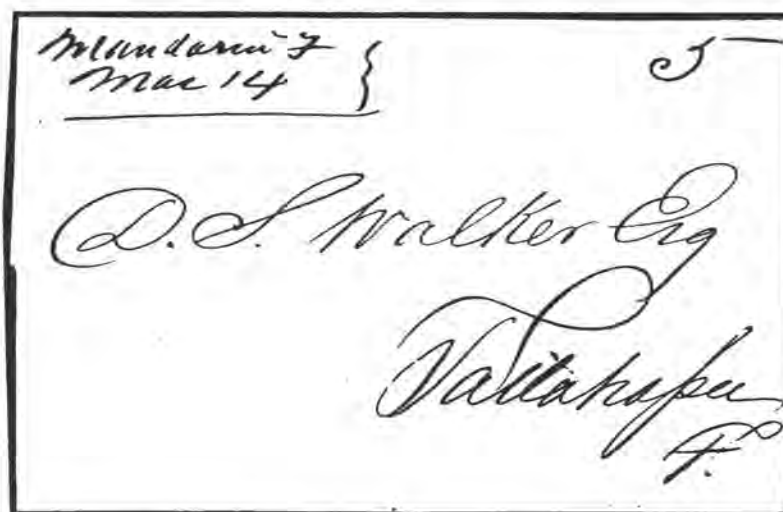 Mandarin F
Mar 14
5
D. S. Walker Esq
Tallahassee
F.